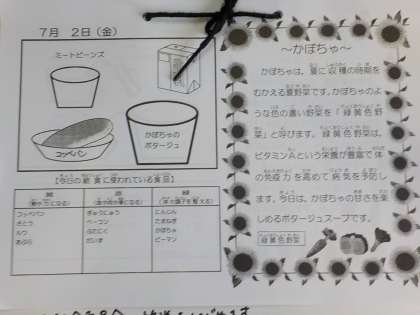 7月 2日(金)
ミートビーンズ
コッペパン
かぼちゃの
ポタージュ
【今日の給食に使われている食品】
黄
赤
緑
(熱や力になる)
(血や肉や骨になる)
(体の調子を整える)
コッペパン
さとう
ルウ
あぶら
ぎゅうにゅう
ベーコン
ぶたにく
だいず
にんじん
たまねぎ
かぼちゃ
ピーマン
〜かぼちゃ〜
かぼちゃは、夏に収穫の時期を
むかえる夏野菜です。かぼちゃのよ
うな色の濃い野菜を「緑黄色野
菜」と呼びます。緑黄色野菜は、
ビタミンAという栄養が豊富で体
の免疫力を高めて病気を予防し
ます。今日は、かぼちゃの甘さを楽
しめるポタージュスープです。
緑黄色野菜